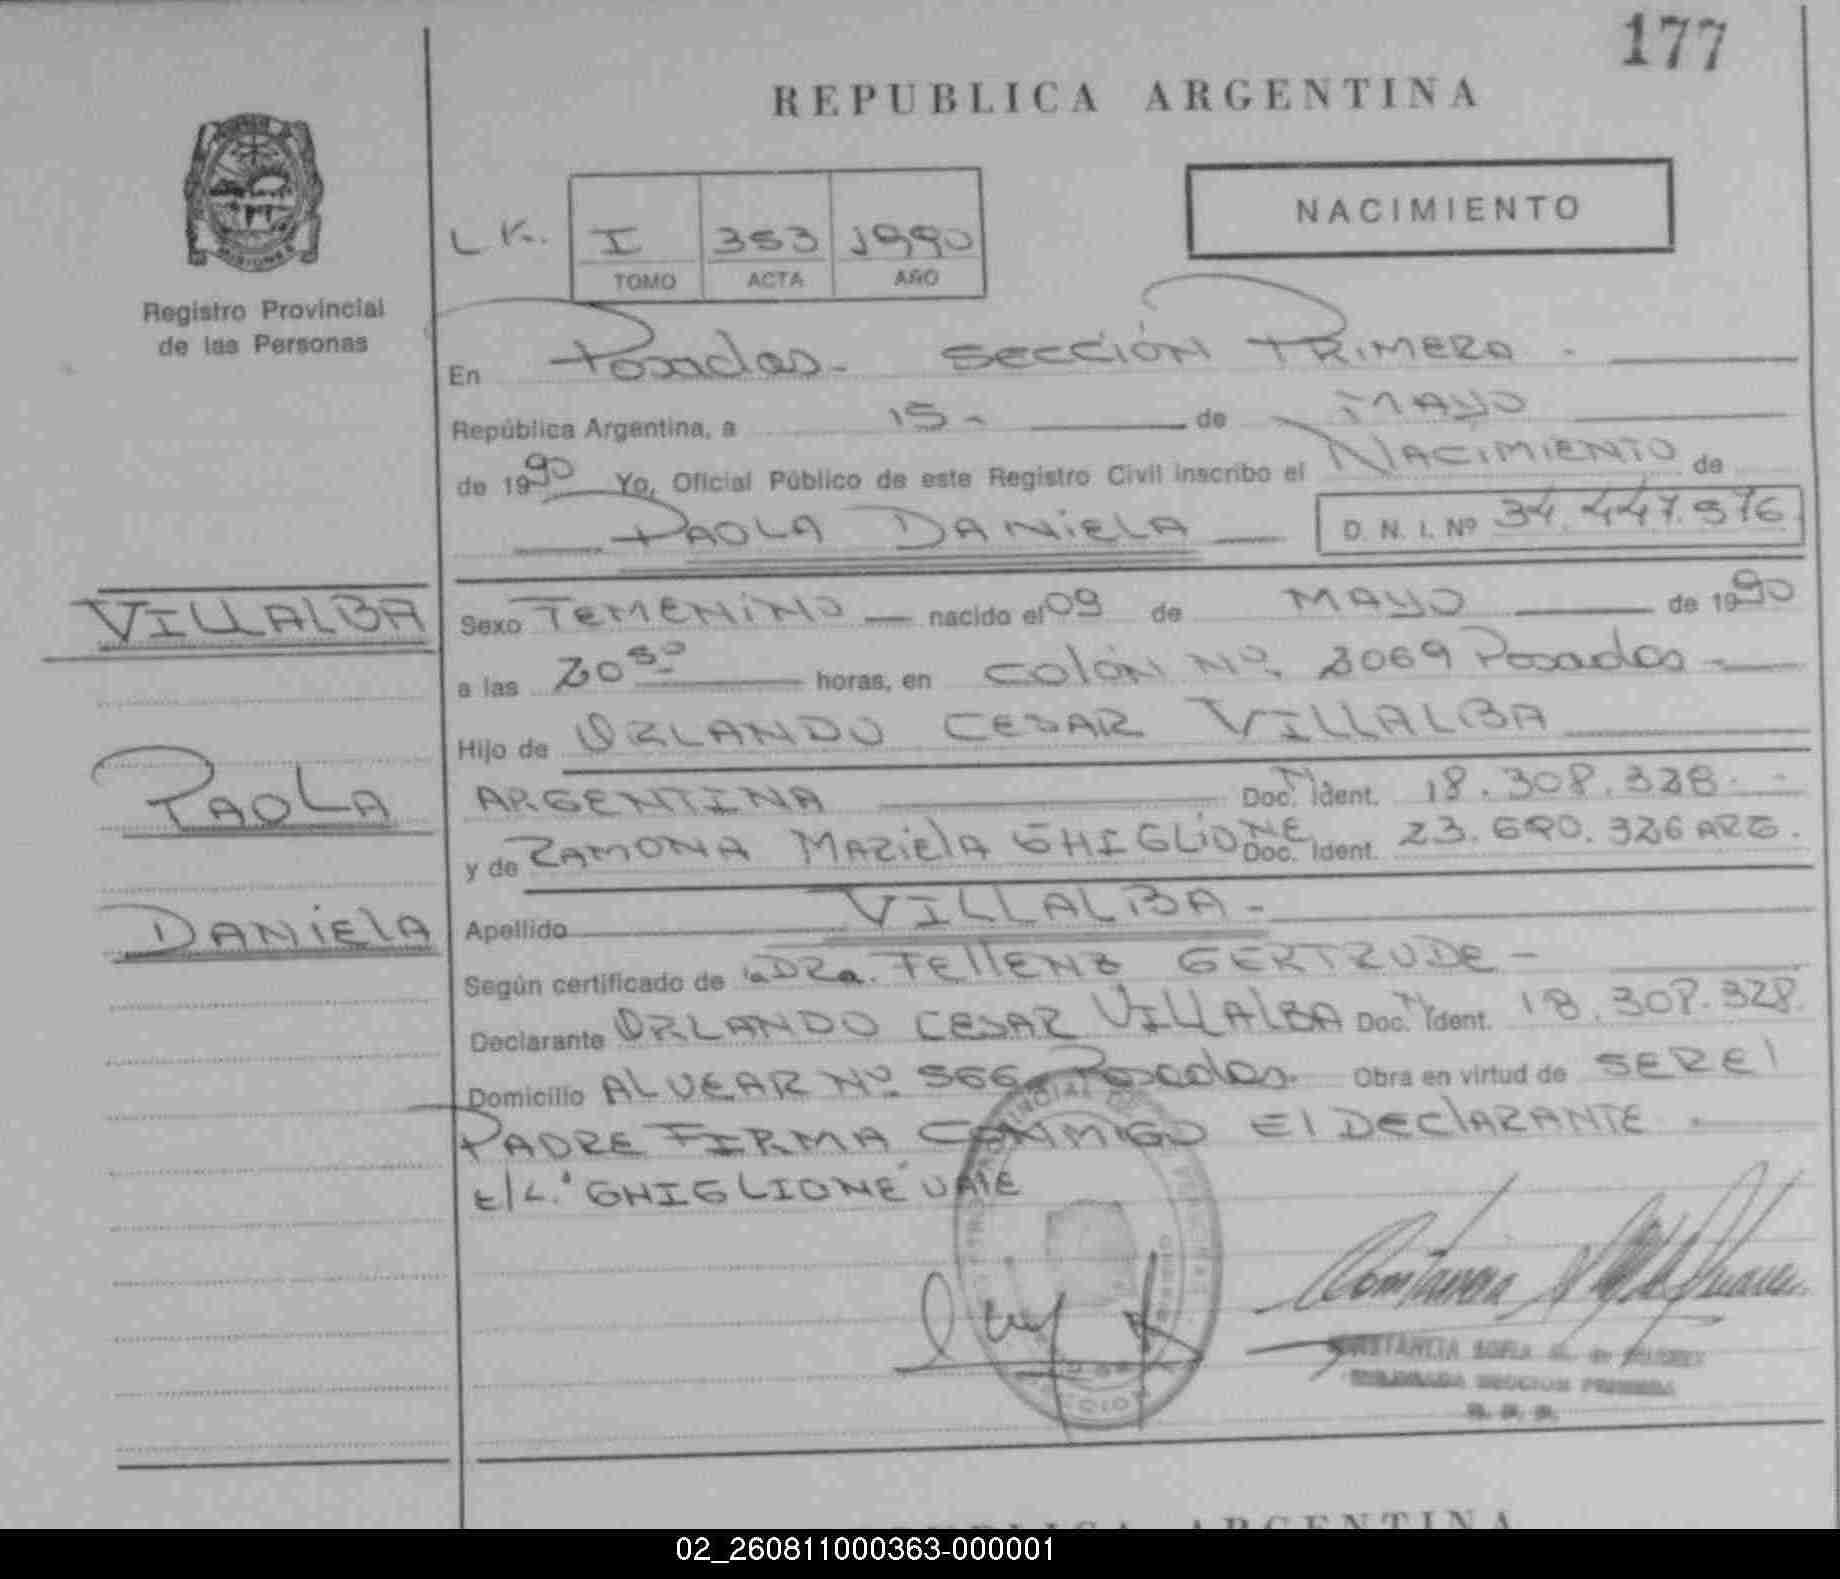 177
REPUBLICA ARGENTINA
NACIMIENTO
L K. I 353 1990
TOMO ACTA AÑO
MISIONES
Registro Provincial
de las Personas
En Posadas - Sección Primera -
República Argentina, a 15 - de Mayo
de 1990 Yo, Oficial Público de este Registro Civil inscribo el Nacimiento de
Paola Daniela D. N. I. Nº 34.447.976
VILLALBA
Sexo Femenino nacido el 09 de Mayo de 1990
a las 20 30 horas, en Colón Nº. 2069 Posadas -
Hijo de ORLANDO CESAR VILLALBA
PAOLA
ARGENTINA Doc. Ident. 18.308.328 -
y de RAMONA MARIELA GHIGLIONE Doc. Ident. 23.690.326 ARG.
DANIELA
Apellido VILLALBA -
Según certificado de la DRa. TELLENZ GERTRUDE -
Declarante ORLANDO CESAR VILLALBA Doc. Ident. 18.308.328.
Domicilio ALVEAR Nº. 566 Posadas. Obra en virtud de SER El
PADRE FIRMA CONMIGO El DEClARANTE.
E/L. "GHIGLIONE" VALE
CONSTANCIA SOFIA
SECCION PRIMERA
REPUBLICA ARGENTINA
02_260811000363-000001